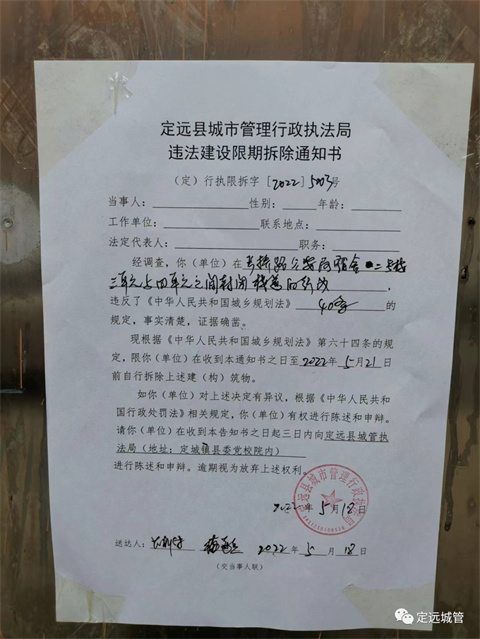 定远县城市管理行政执法局
违法建设限期拆除通知书
（定）行执限拆字［2022］5003号
当事人：性别：年龄：
工作单位：联系地点：
法定代表人：职务：
经调查，你（单位）在
三单元与四单元之间封闭
违反了《中华人民共和国城乡规划法》40条的
规定，事实清楚，证据确凿。
现根据《中华人民共和国城乡规划法》第六十四条的规
定，限你（单位）在收到本通知书之日至2022年5月21日
前自行拆除上述建（构）筑物。
如你（单位）对上述决定有异议，根据《中华人民共和
国行政处罚法》相关规定，你（单位）有权进行陈述和申辩。
请你（单位）在收到本告知书之日起三日内向定远县城管执
法局（地址：定城镇县委党校院内）
进行陈述和申辩。逾期视为放弃上述权利。
定远县城市管理行政执法局
2022年5月18日
送达人：2022年5月18日
（交当事人联）
定远城管